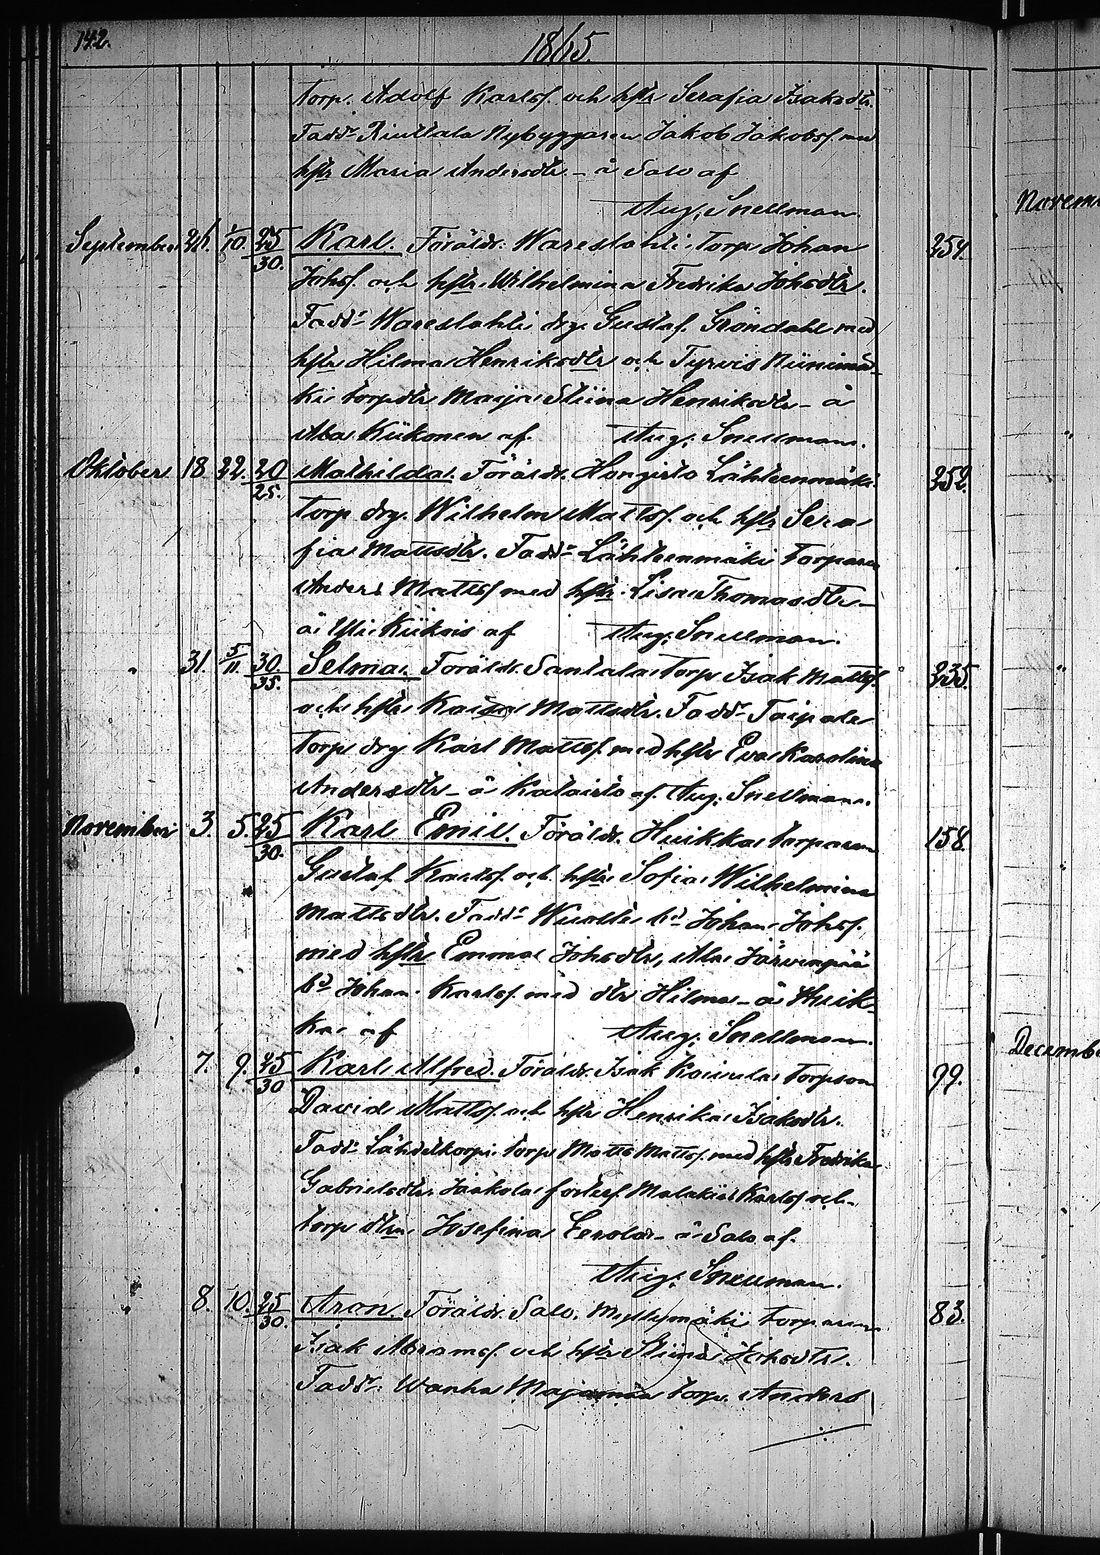 142.
1865.
torp. Adolf Karlsf. och hstr Serafia Isaksdtr.
Fadd: Riuttala Nybyggaren Jakob Jakobsf. med
hstr Maria Andersdtr - å Salo af
Aug. Snellman.
September 26. 1/10. 25/30. Karl. Föräldr. Torp Johan 254.
Johsf. och hstr. Wilhelmina Fredrika Johsdtr.
Fadd: drg. Gustaf Gröndahl med
hstr Hilma Henriksdtr och Tyrvis Niinimä-
ki torpdtr Maija Stiina Henriksdtr - å
Ala Kiikonen af Aug. Snellman.
Oktober 18. 22. 20/25. Mathilda. Föräldr. Hongisto Lähteenmäki 252.
torp drg. Wilhelm Mattsf. och hstr Sera
fia Mattsdtr. Fadd: Lähteenmäki torparen
Anders Mattsf med hstr. Lisa Thomasdtr -
å Yli Kiikois af Aug. Snellman.
" 31. 5/11. 30/35. Selma. Föräldr. Santala torp Isak Mattsf. 235.
och hstr Kaisa Mattsdtr. Fadd: Taipale
torp drg Karl Mattsf. med hstr Eva Karolina
Andersdtr - å Kalaisto af. Aug. Snellman.
November 3. 5. 25/30. Karl Emil. Föräldr. Huikka torparen 158.
Gustaf Karlsf. och hstr Sofia Wilhelmina
Mattsdtr. Fadd: bd Johan Johsf.
med hstr Emma Johsdtr, Ala Järvenpää
bd Johan Karlsf. med dtr Hilma - å Huik-
ka af Aug. Snellman.
" 7. 9. 25/30 Karl Alfred. Föräldr. Isak Koivula torparen 99.
David Mattsf. och hstr Henrika Isaksdtr.
Fadd: Lähdekorpi torp Matts Mattsf. med hstr Fredrika
Gabrielsdtr, Jaakola Malakias Karlsf och
torp Josefina - å Salo af.
Aug. Snellman.
" 8. 10. 25/30. Aron. Föräldr. Salo, Myllymäki torparen 83.
Isak Abramsf. och hstr Stiina Johsdtr.
Fadd: Wanha torp. Anders
Novem
Decemb